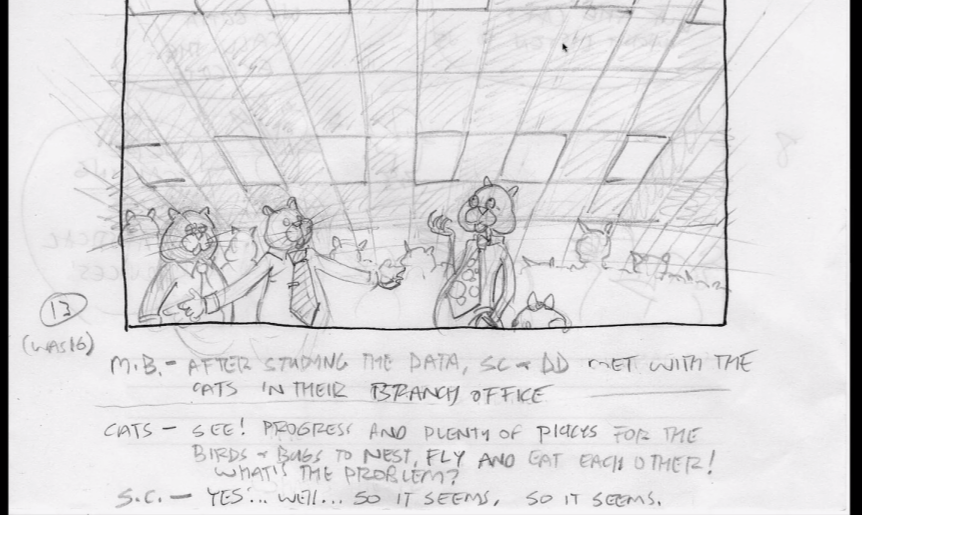 13
(WAS 16)
M.B. - AFTER STUDYING THE DATA, SC + DD MET WITH THE
CATS IN THEIR BRANCH OFFICE
CATS - SEE! PROGRESS AND PLENTY OF PLACES FOR THE
BIRDS + BUGS TO NEST, FLY AND EAT EACH OTHER!
WHAT'S THE PROBLEM?
S.C. - YES... WELL... SO IT SEEMS, SO IT SEEMS.